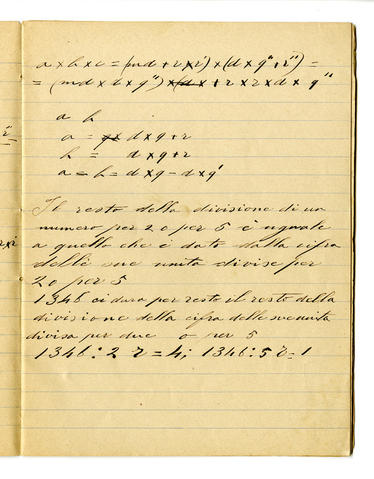 a × b × c = (md + r × r') × (d × q" + r") =
= (md × b × q") × (d × + r × r × d × q"
a b
a = d × q + r
b = d × q + r
a - b = d × q - d × q'
Il resto della divisione di un
numero per 2 o per 5 è uguale
a quello che è dato dalla cifra
delle sue unità divise per
2 o per 5
1346 ci dara per resto il resto della
divisione della cifra delle sue unità
divisa per due o per 5
1346 : 2 r = 4; 1346 : 5 r = 1